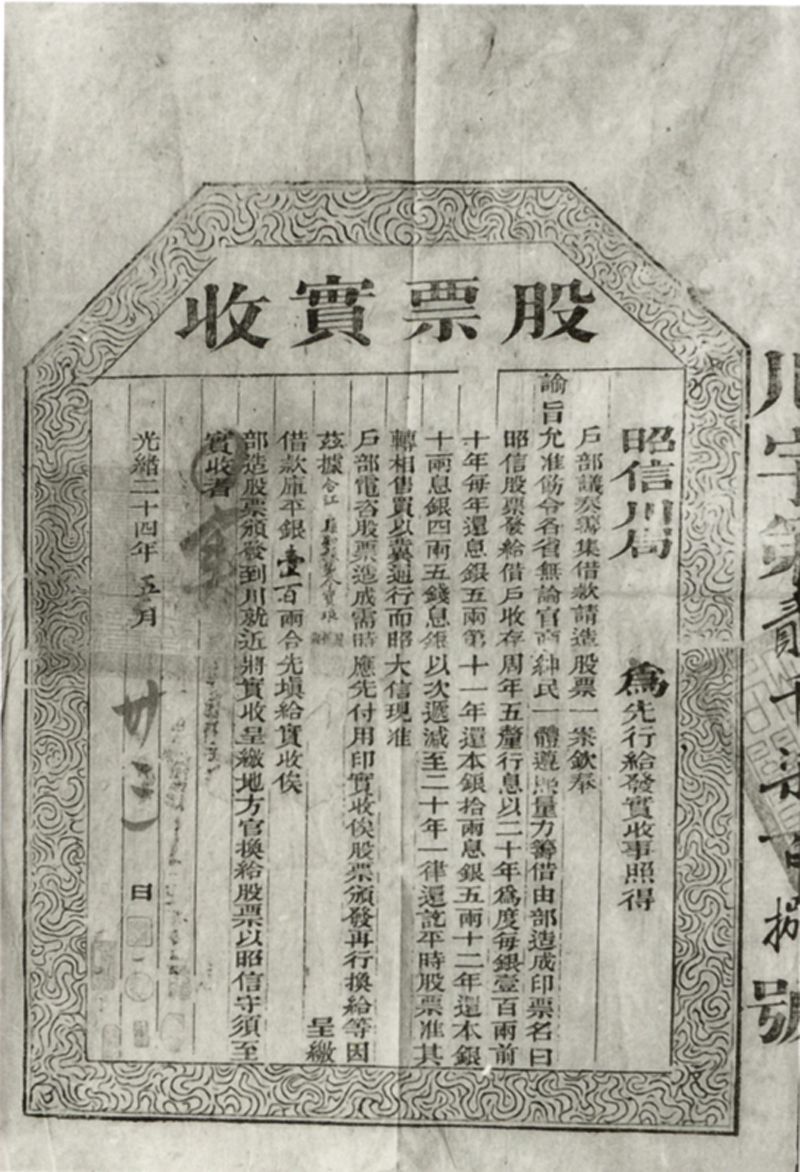 股票實收
昭信川局 為先行給發實收事照得
戶部議奏籌集借款請造股票一案欽奉
諭旨允准飭令各省無論官商紳民一體遵照量力籌借由部造成印票名曰
昭信股票發給借戶收存周年五釐行息以二十年為度每銀壹百兩前
十年每年還息銀五兩第十一年還本銀拾兩息銀五兩十二年還本銀
十兩息銀四兩五錢息銀以次遞減至二十年一律還訖平時股票准其
轉相售買以冀通行而昭大信現准
戶部電咨股票造成需時應先付用印實收俟股票頒發再行換給等因
茲據合江 呈繳
借款庫平銀壹百兩合先填給實收俟
部造股票頒發到川就近將實收呈繳地方官換給股票以昭信守須至
實收者
實
光緒二十四年五月廿三日
川字第貳千柒百捌號